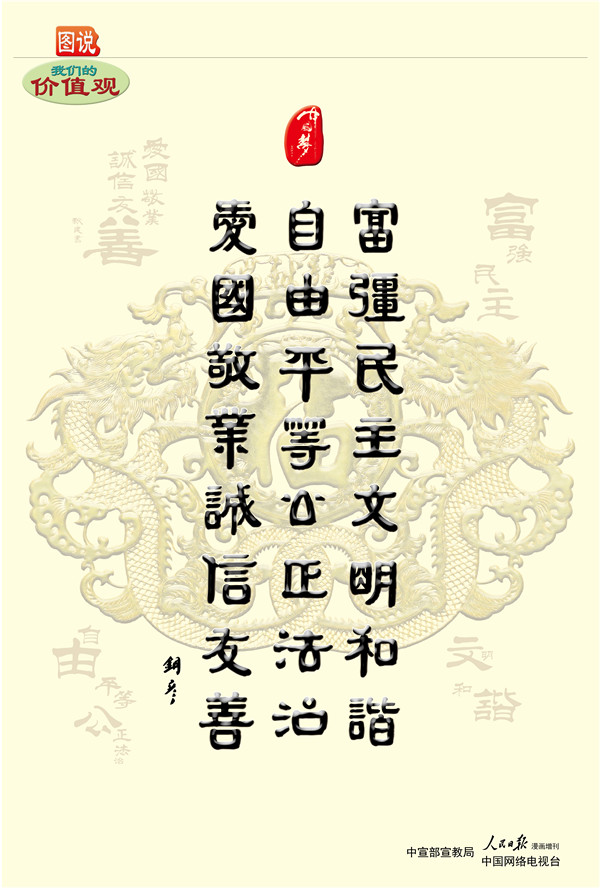 图说
我们的
价值观
中国梦
富彊民主文明和諧
自由平等公正法治
愛國敬業誠信友善
愛國敬業
誠信友善
富強
民主
自由
平等
公正法治
文明
和諧
中宣部宣教局
人民日报 漫画增刊
中国网络电视台